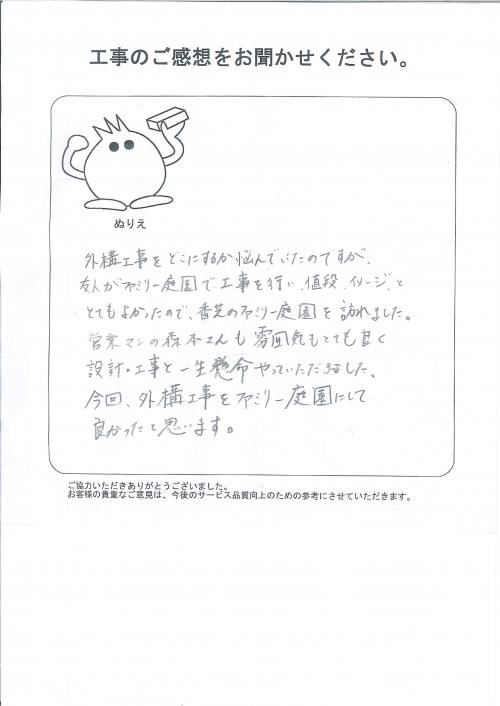 工事のご感想をお聞かせください。
ぬりえ
外構工事をどこにするか悩んでいたのですが、
友人がファミリー庭園で工事を行い、値段、イメージ、と
とてもよかったので、香芝のファミリー庭園を訪れました。
営業マンの森本さんも雰囲気もとても良く
設計・工事と一生懸命やっていただきました、
今回、外構工事をファミリー庭園にして
良かったと思います。
ご協力いただきありがとうございました。
お客様の貴重なご意見は、今後のサービス品質向上のための参考にさせていただきます。